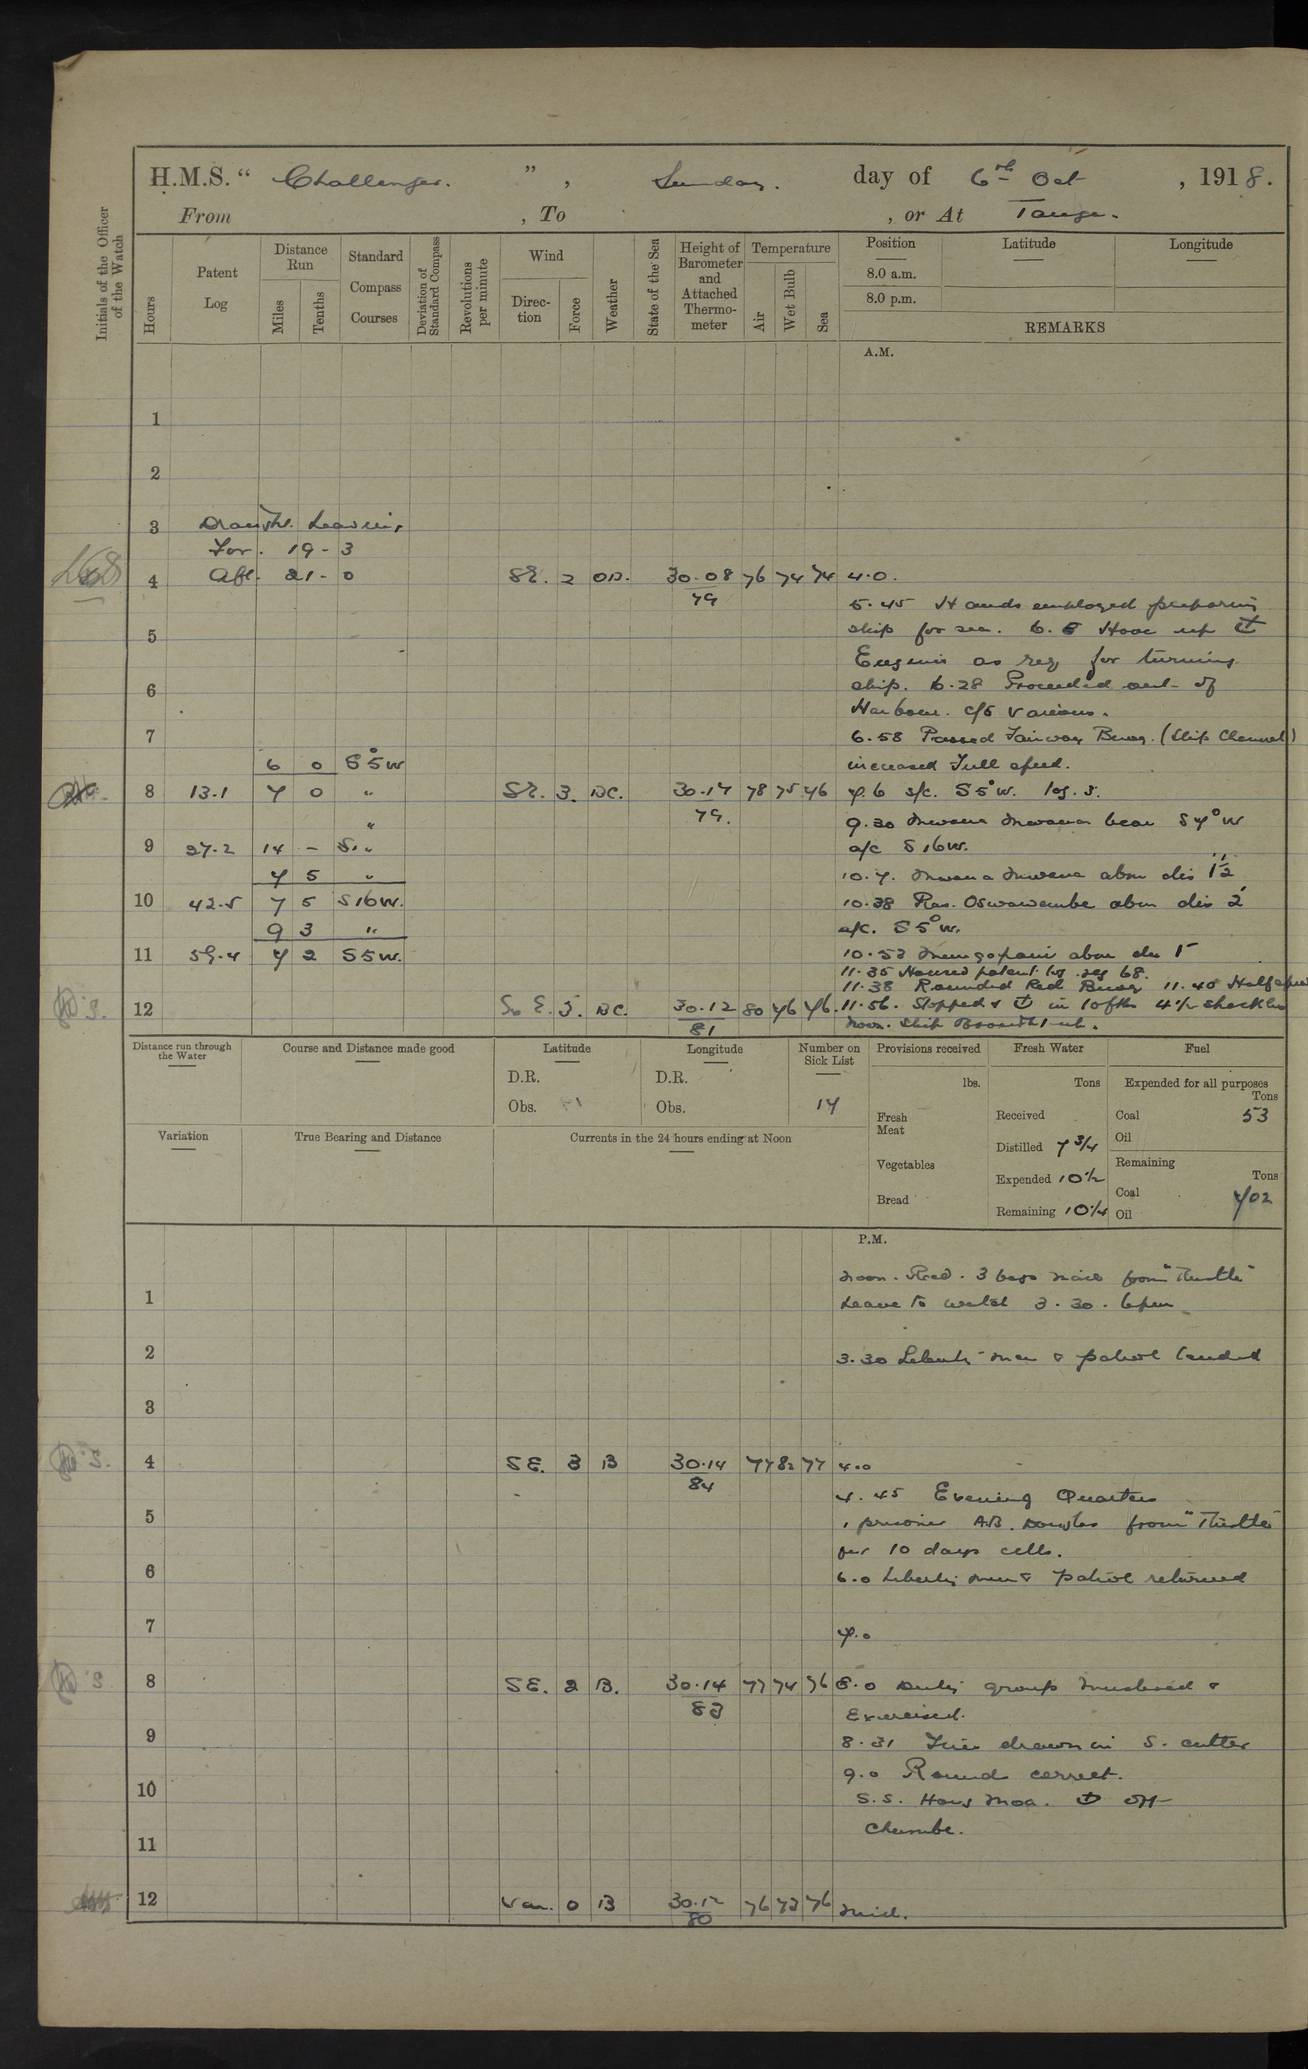 H.M.S. “ Challenger. ” , Sunday. day of 6th Oct , 1918.
From , To , or At Tanga.
Initials of the Officer of the Watch
Hours
Patent Log
Distance Run
Miles
Tenths
Standard Compass Courses
Deviation of Standard Compass
Revolutions per minute
Wind
Direction
Force
Weather
State of the Sea
Height of Barometer and Attached Thermometer
Temperature
Air
Wet Bulb
Sea
Position Latitude Longitude
8.0 a.m.
8.0 p.m.
REMARKS
A.M.
1
2
3 Draught Leaving
For. 19 - 3
4 Aft. 21 - 0 SE. 2 OD. 30.08 76 74 74 4.0.
79
5.45 Hands employed preparing
5 ship for sea. 6.5 Hove up ⚓
as req for turning
6 ship. 6.28 Proceeded out of
Harbour. c/s various.
7 6.58 Passed Fairway Buoy. (Ship Channel)
6 0 S5°W increased Full speed.
8 13.1 7 0 " SE. 3. BC. 30.17 78 75 76 7.6 s/c. S5°W. log. 5.
" 79. 9.30 Mwana Mwana bear S7°W
9 27.2 14 - " a/c S16W.
7 5 " 10.7. Mwana Mwana abm dis 1½'
10 42.5 7 5 S16W. 10.38 Ras. abm dis 2'
9 3 " a/c. S5°W.
11 59.4 7 2 S5W. 10.53 abm dis 1'
11.35 Hauled patent log reg 68.
11.38 Rounded Red Buoy 11.45 Half speed
12 S. E. 3. BC. 30.12 80 76 76. 11.56. Stopped & ⚓ in 10 fths 4½ shackles
81 Noon. Ship Brought up.
Distance run through the Water
Course and Distance made good
Latitude Longitude
D.R. D.R.
Obs. Obs.
Number on Sick List
14
Provisions received
lbs.
Fresh Meat
Vegetables
Bread
Fresh Water
Tons
Received
Distilled 7 3/4
Expended 10½
Remaining 10¼
Fuel
Expended for all purposes
Tons
Coal 53
Oil
Remaining
Tons
Coal 702
Oil
Variation
True Bearing and Distance
Currents in the 24 hours ending at Noon
P.M.
Noon. Recd. 3 bags mail from "Thistle"
1 Leave to watch 3.30. 6pm
2 3.30 Liberty men & patrol landed
3
4 SE. 3 B 30.14 77 82 77 4.0
84
4.45 Evening Quarters
5 1 prisoner AB. from "Thistle"
for 10 days cells.
6 6.0 Liberty men & patrol returned
7 7.0
8 SE. 2 B. 30.14 77 74 76 8.0 Duty group mustered &
83 Exercised.
9 8.31 Fires drawn in S. cutter
9.0 Rounds correct.
10 S.S. Hong Moa. ⚓ off
Chumbe.
11
12 Var. 0 B 30.12 76 73 76 Mid.
80